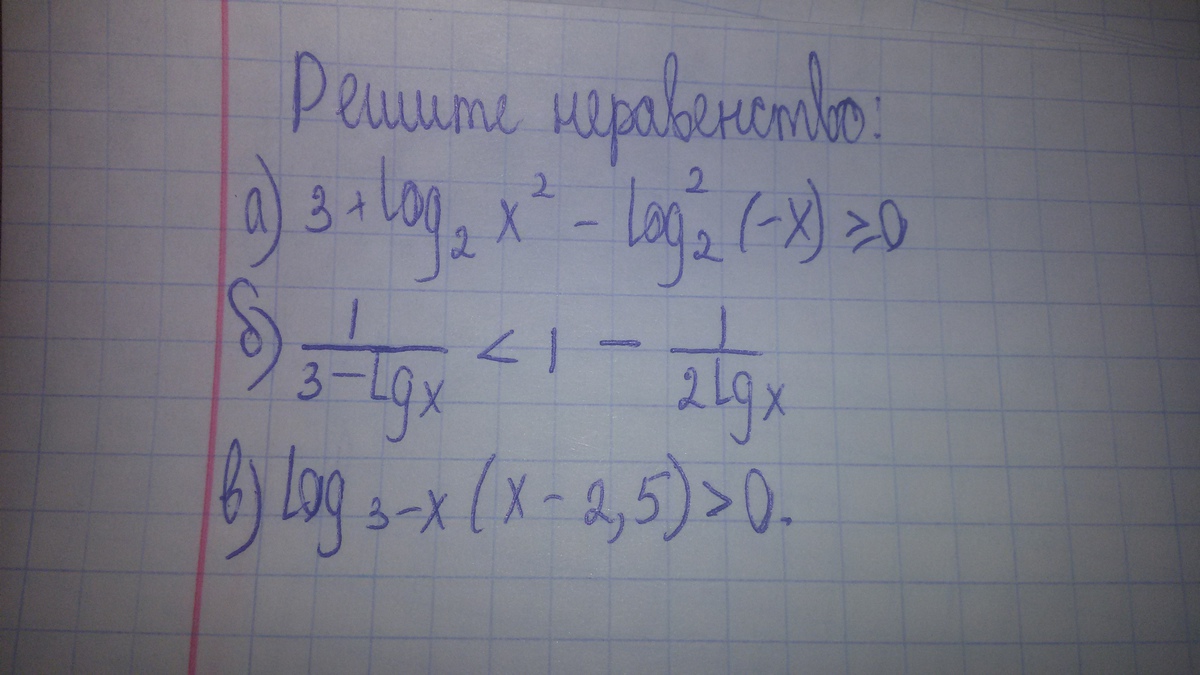 Решите неравенство:
а) 3 + log₂ x² - log₂² (-x) ≥ 0
б) 1/(3 - lgx) < 1 - 1/(2lgx)
в) log₃₋ₓ (x - 2,5) > 0.